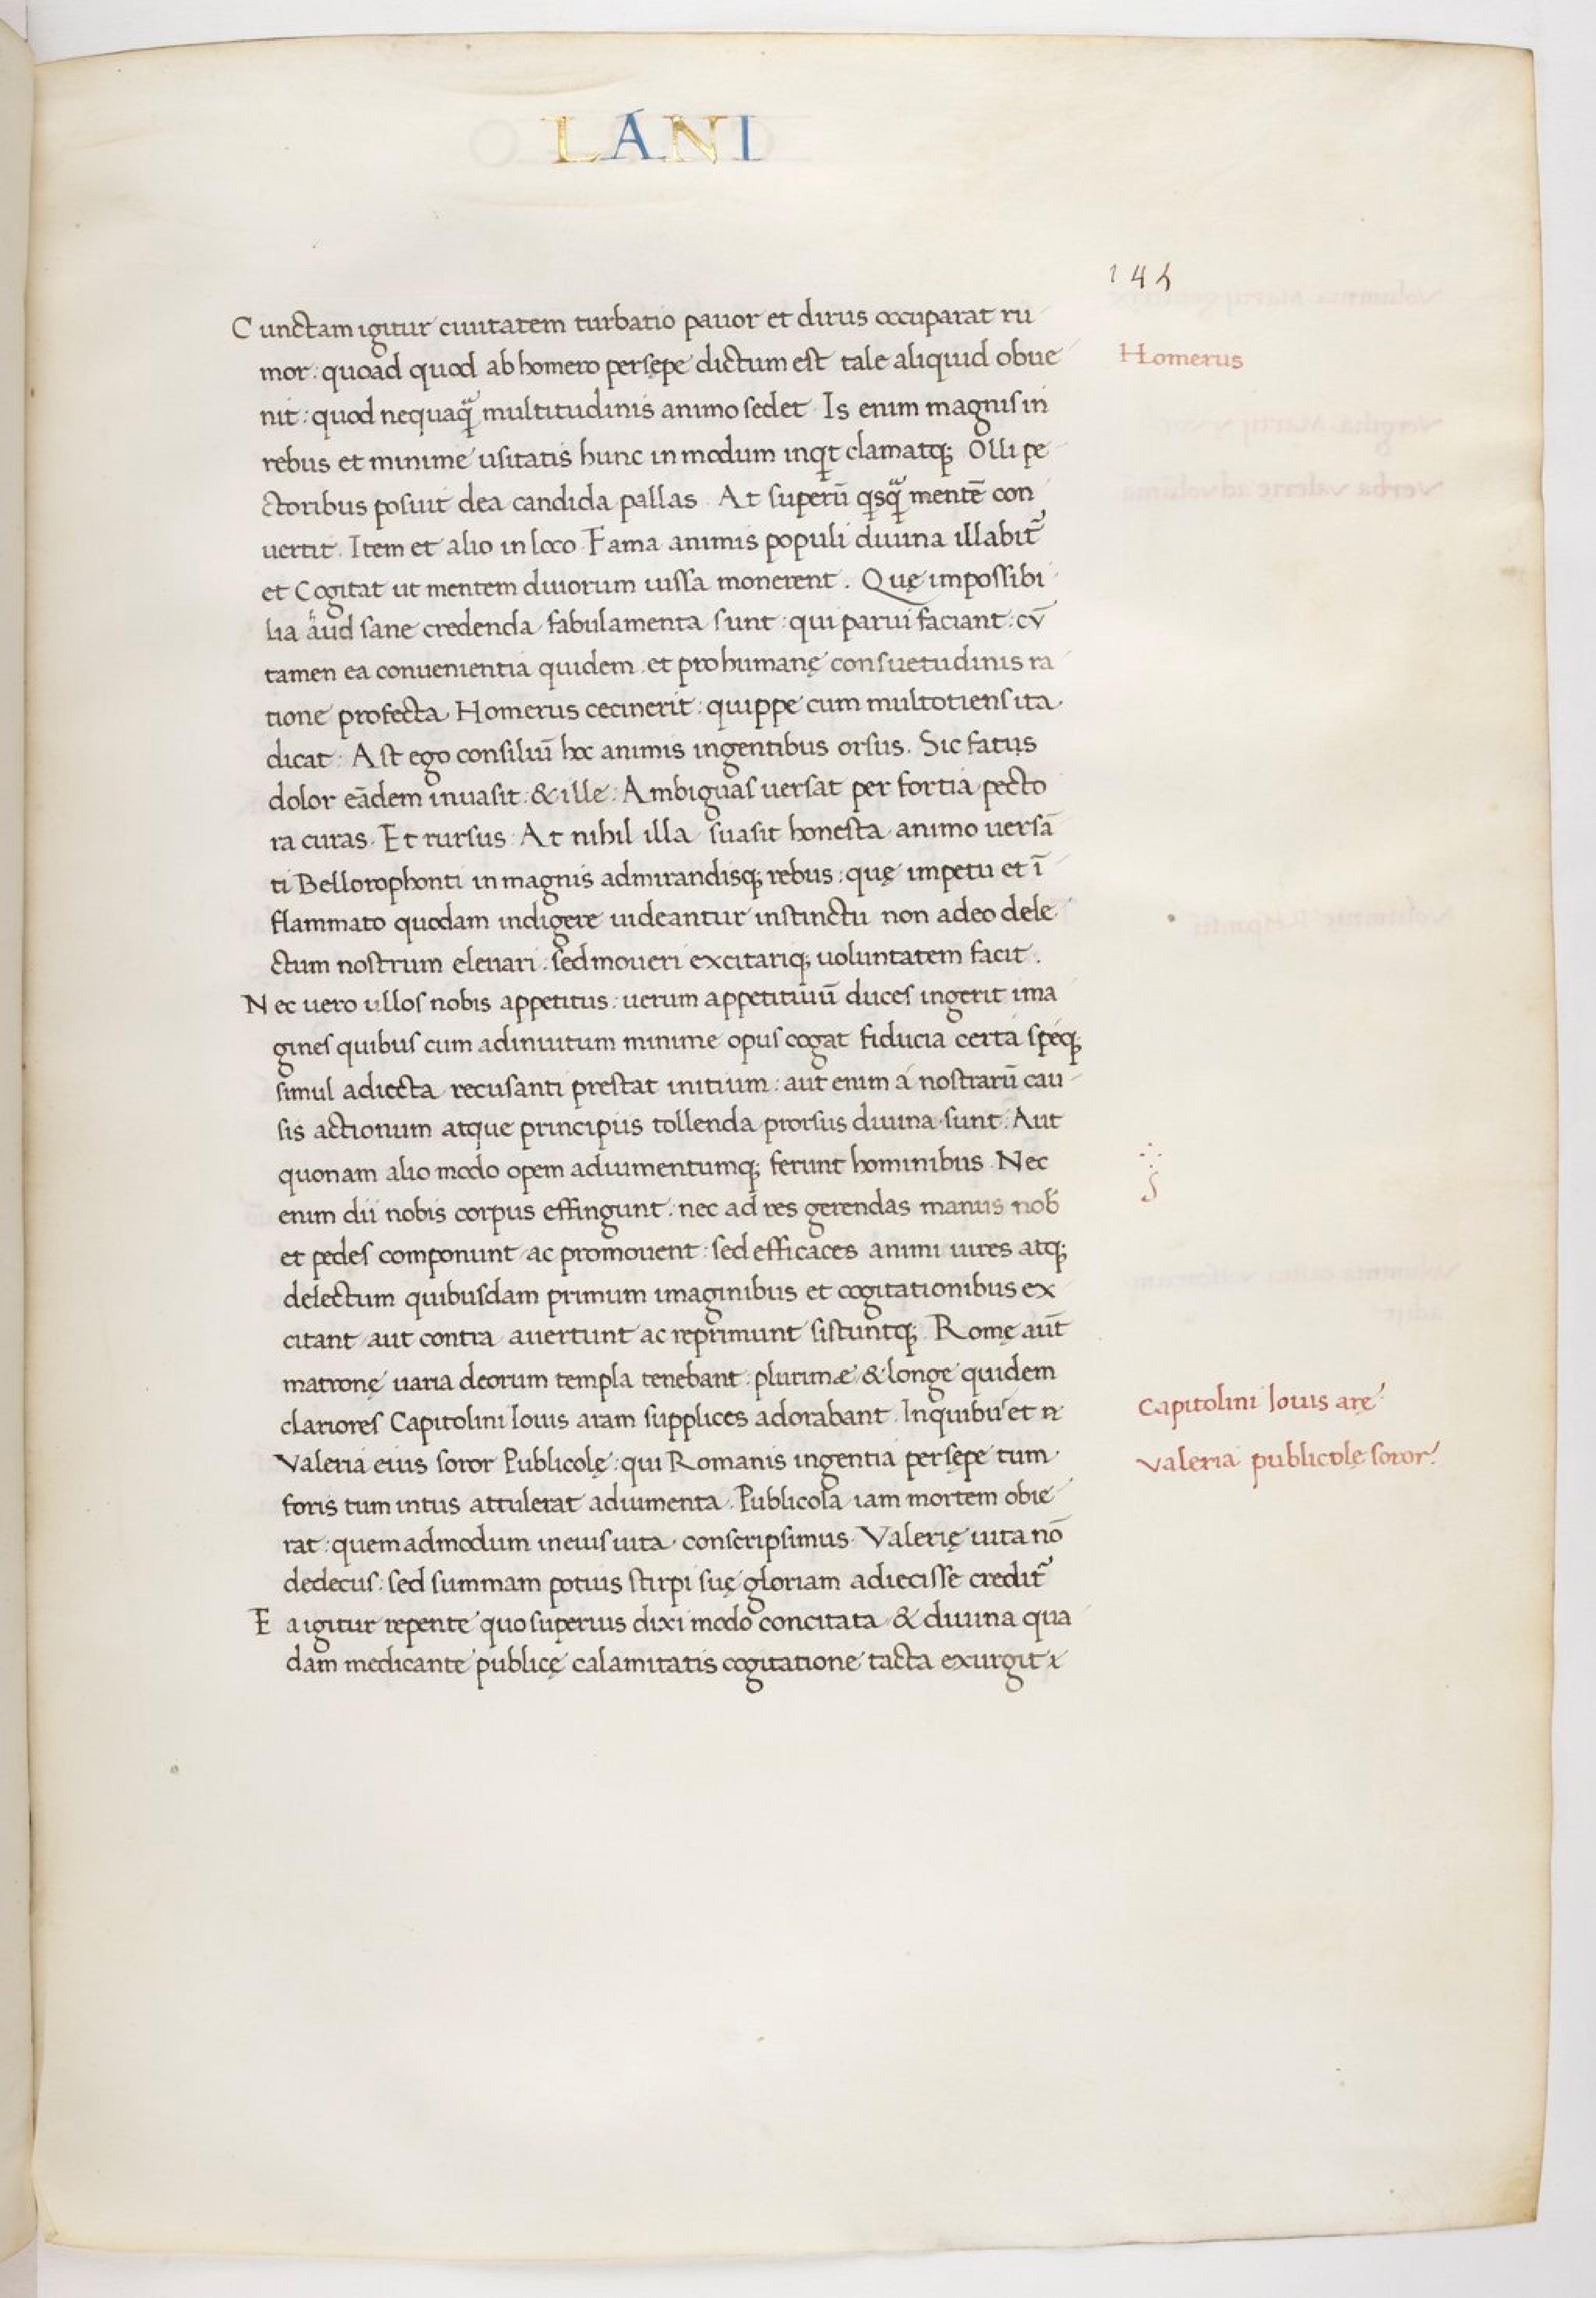 LANI
145
Cunctam igitur ciuitatem turbatio pauor et dirus occuparat ru
mor: quoad quod ab homero persępe dictum est tale aliquid obue
Homerus
nit: quod nequaq̃ multitudinis animo sedet. Is enim magnis in
rebus et minime usitatis hunc in modum inqt clamatq; Olli pe
ctoribus posuit dea candida pallas. At superū qsq̃ mentē con
uertit. Item et alio in loco. Fama animis populi diuina illabit̃
et Cogitat ut mentem diuorum iussa monerent. Quę impossibi
lia aud sane credenda fabulamenta sunt: qui parui faciant: cū
tamen ea conuenientia quidem: et pro humanę consuetudinis ra
tione profecta Homerus cecinerit: quippe cum multotiens ita
dicat: Ast ego consiliū hoc animis ingentibus orsus. Sic fatus
dolor eādem inuasit: & ille: Ambiguas uersat per fortia pecto
ra curas. Et rursus. At nihil illa suasit honesta animo uersā
ti Bellorophonti in magnis admirandisq; rebus: quę impetu et ī
flammato quodam indigere uideantur instinctu non adeo dele
ctum nostrum eleuari: sed moueri excitariq; uoluntatem facit.
Nec uero ullos nobis appetitus: uerum appetituū duces ingerit ima
gines quibus cum ad inuitum minime opus cogat fiducia certa speq;
simul adiecta recusanti prestat initium: aut enim a nostrarū cau
sis actionum atque principiis tollenda prorsus diuina sunt: Aut
quonam alio modo opem adiumentumq; ferunt hominibus. Nec
enim dii nobis corpus effingunt: nec ad res gerendas manus nob
et pedes componunt ac promouent: sed efficaces animi uires atq;
delectum quibusdam primum imaginibus et cogitationibus ex
citant aut contra auertunt ac reprimunt sistuntq; Romę aūt
matronę uaria deorum templa tenebant: plurimæ & longe quidem
clariores Capitolini Iouis aram supplices adorabant. In quibus et
Capitolini Iouis arę
Valeria eius soror Publicolę: qui Romanis ingentia persępe tum
Valeria publicolę soror.
foris tum intus attulerat adiumenta. Publicola iam mortem obie
rat: quemadmodum in eius uita conscripsimus. Valerię uita nō
dedecus: sed summam potius stirpi suę gloriam adiecisse credit̃
Ea igitur repente quo superius dixi modo concitata & diuina qua
dam medicante publicę calamitatis cogitatione tacta exurgit